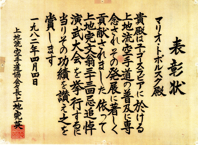 表彰状
マリオ・トボルスク殿
貴殿はイスラエルに於ける
上地流空手道の普及に専
念されその発展に著しく
貢献されました 依って
上地完文翁三十一回忌追悼
演武大会を挙行するに
当りその功績を讃え之を
賞します
一九八一年四月四日
上地流空手道協会会長上地完英